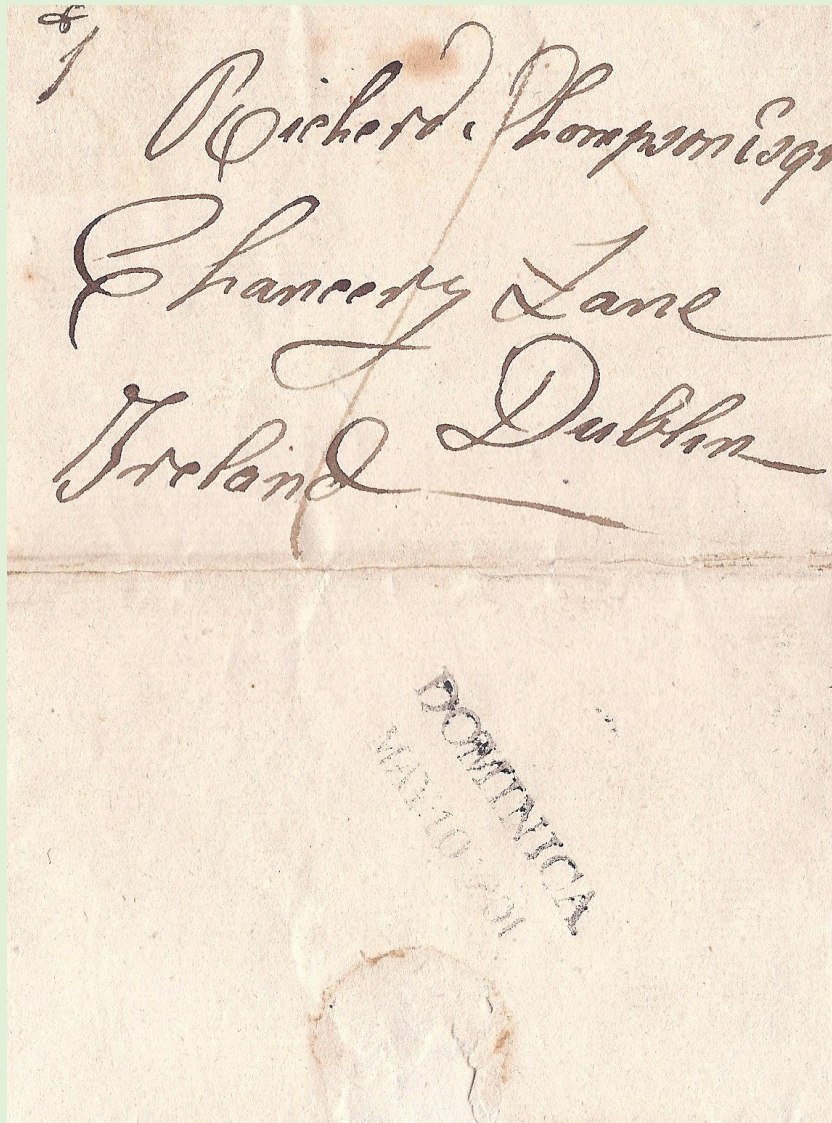 Richard Thompson Esqr
Chancery Lane
Dublin
Ireland
DOMINICA
MAY 10 1801